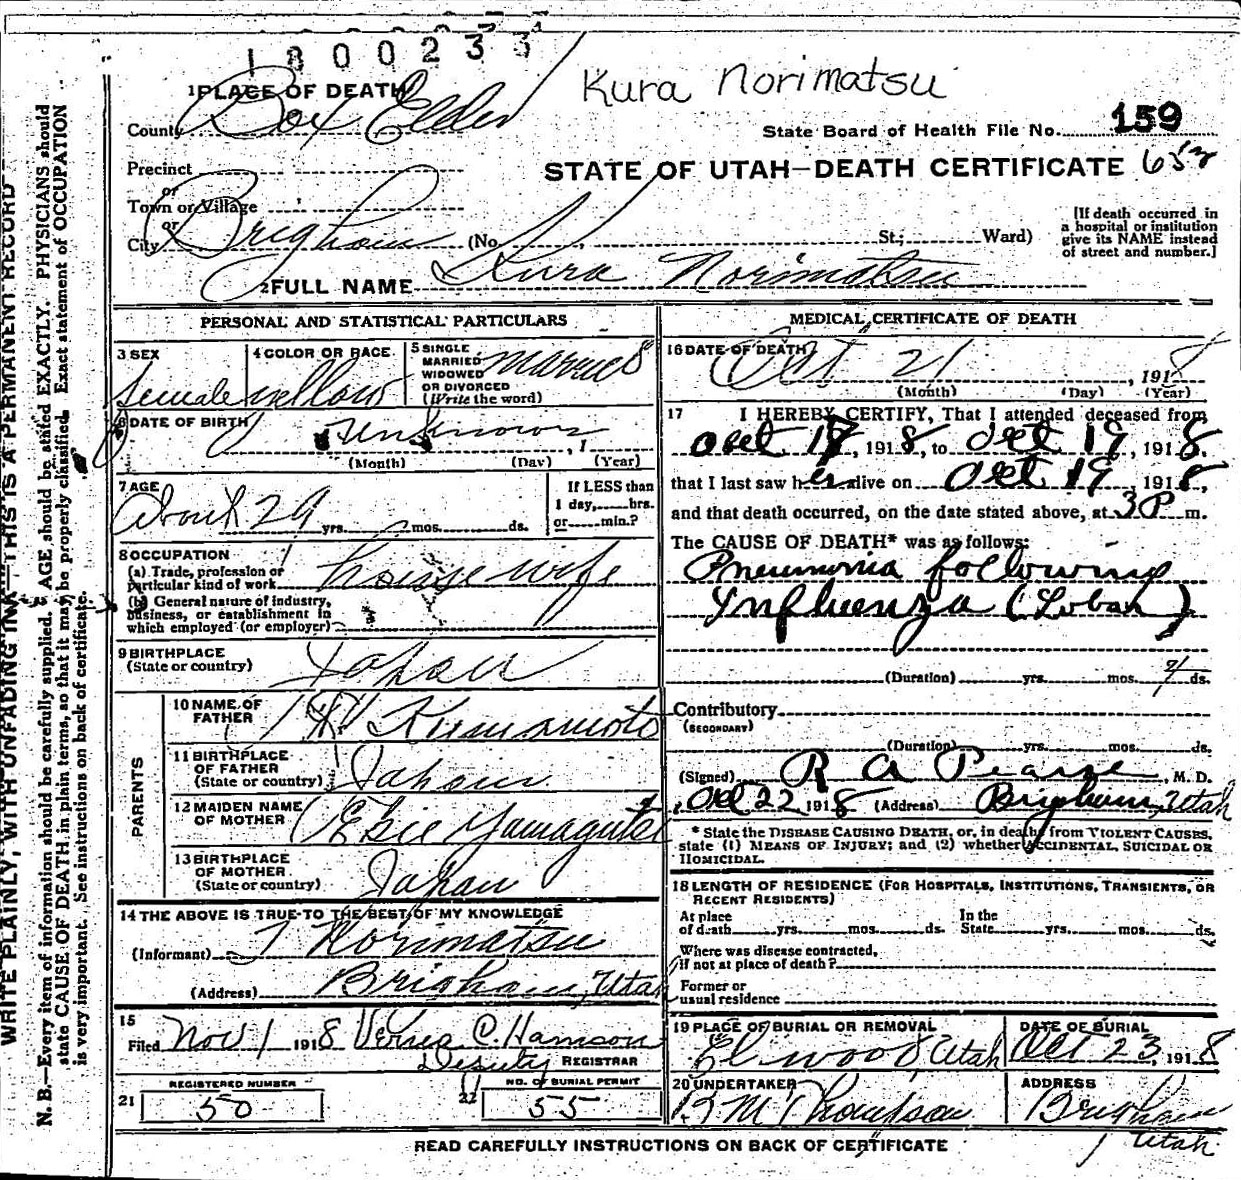 1800233
Kura Norimatsu
1 PLACE OF DEATH
County Box Elder
State Board of Health File No. 159
Precinct
STATE OF UTAH—DEATH CERTIFICATE 652
or
Town or Village
or
City Brigham (No. St.; Ward)
[If death occurred in a hospital or institution give its NAME instead of street and number.]
2 FULL NAME Kura Norimatsu
PERSONAL AND STATISTICAL PARTICULARS
3 SEX
Female
4 COLOR OR RACE
yellow
5 SINGLE MARRIED WIDOWED OR DIVORCED (Write the word)
Married
6 DATE OF BIRTH
unknown, 1
(Month) (Day) (Year)
7 AGE
About 29 yrs. mos. ds.
If LESS than 1 day, hrs. or min.?
8 OCCUPATION
(a) Trade, profession or particular kind of work house wife
(b) General nature of industry, business, or establishment in which employed (or employer)
9 BIRTHPLACE
(State or country) Japan
PARENTS
10 NAME OF FATHER Kumamoto
11 BIRTHPLACE OF FATHER (State or country) Japan
12 MAIDEN NAME OF MOTHER Ekie Yamaguta
13 BIRTHPLACE OF MOTHER (State or country) Japan
14 THE ABOVE IS TRUE TO THE BEST OF MY KNOWLEDGE
(Informant) T Norimatsu
(Address) Brigham, Utah
15
Filed Nov 1 1918 Verna C. Harrison
Deputy REGISTRAR
REGISTERED NUMBER
21 50
NO. OF BURIAL PERMIT
22 55
MEDICAL CERTIFICATE OF DEATH
16 DATE OF DEATH
Oct 21, 1918
(Month) (Day) (Year)
17 I HEREBY CERTIFY, That I attended deceased from
Oct 18, 1918, to Oct 19, 1918,
that I last saw her alive on Oct 19, 1918,
and that death occurred, on the date stated above, at 3 P m.
The CAUSE OF DEATH* was as follows:
Pneumonia following
Influenza (Lobar)
(Duration) yrs. mos. ds.
Contributory
(SECONDARY)
(Duration) yrs. mos. ds.
(Signed) R A Pearse, M. D.
Oct 22 1918 (Address) Brigham, Utah
* State the DISEASE CAUSING DEATH, or, in deaths from VIOLENT CAUSES, state (1) MEANS OF INJURY; and (2) whether ACCIDENTAL, SUICIDAL OR HOMICIDAL.
18 LENGTH OF RESIDENCE (FOR HOSPITALS, INSTITUTIONS, TRANSIENTS, OR RECENT RESIDENTS)
At place of death yrs. mos. ds. In the State yrs. mos. ds.
Where was disease contracted, if not at place of death?
Former or usual residence
19 PLACE OF BURIAL OR REMOVAL
Elwood, Utah
DATE OF BURIAL
Oct 23, 1918
20 UNDERTAKER
R M Thompson
ADDRESS
Brigham
Utah
READ CAREFULLY INSTRUCTIONS ON BACK OF CERTIFICATE
WRITE PLAINLY, WITH UNFADING INK—THIS IS A PERMANENT RECORD
N. B.—Every item of information should be carefully supplied. AGE should be stated EXACTLY. PHYSICIANS should
state CAUSE OF DEATH in plain terms, so that it may be properly classified. Exact statement of OCCUPATION
is very important. See instructions on back of certificate.